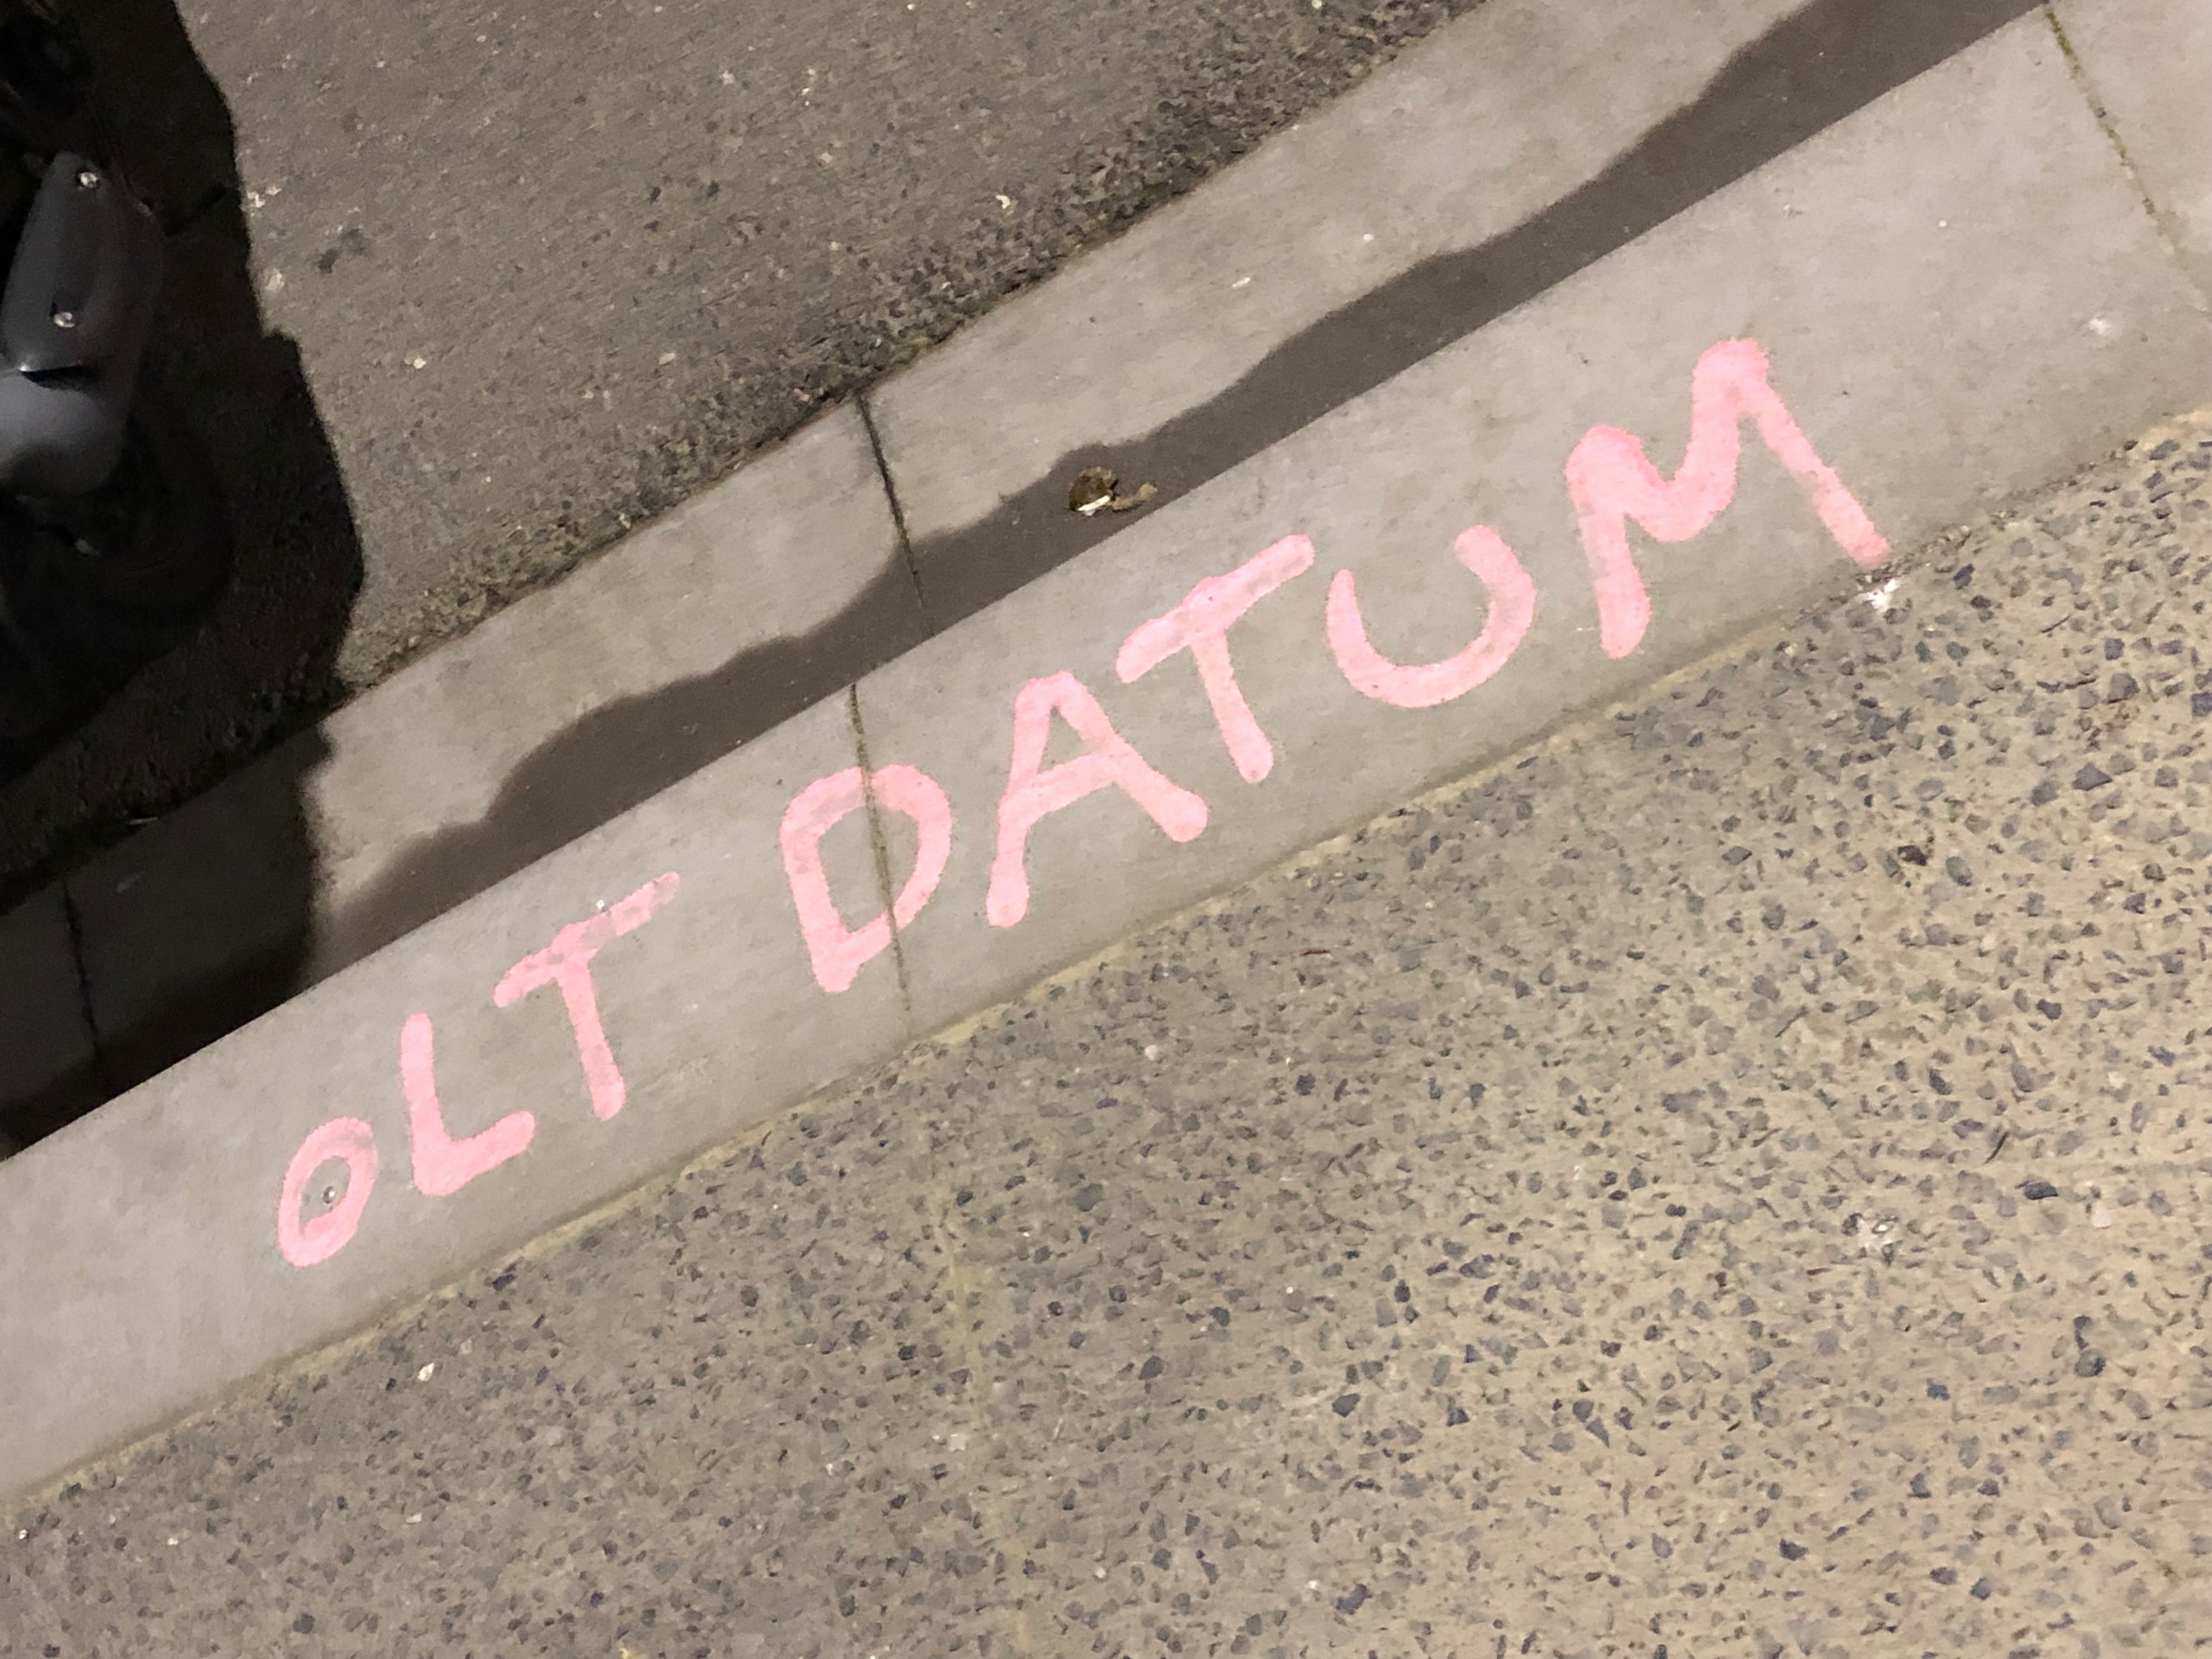 OLT DATUM